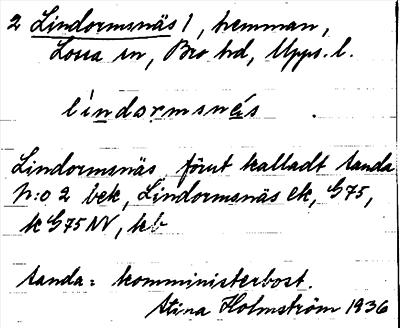 2 Lindormsnäs 1, hemman,
Lossa sn, Bro hd, Upps. l.
lindormsnés
Lindormsnäs förut kalladt Tanda
N:o 2 bek, Lindormsnäs ek, G75,
k G75 NV, hb
Tanda = komministerbost.
Stina Holmström 1936